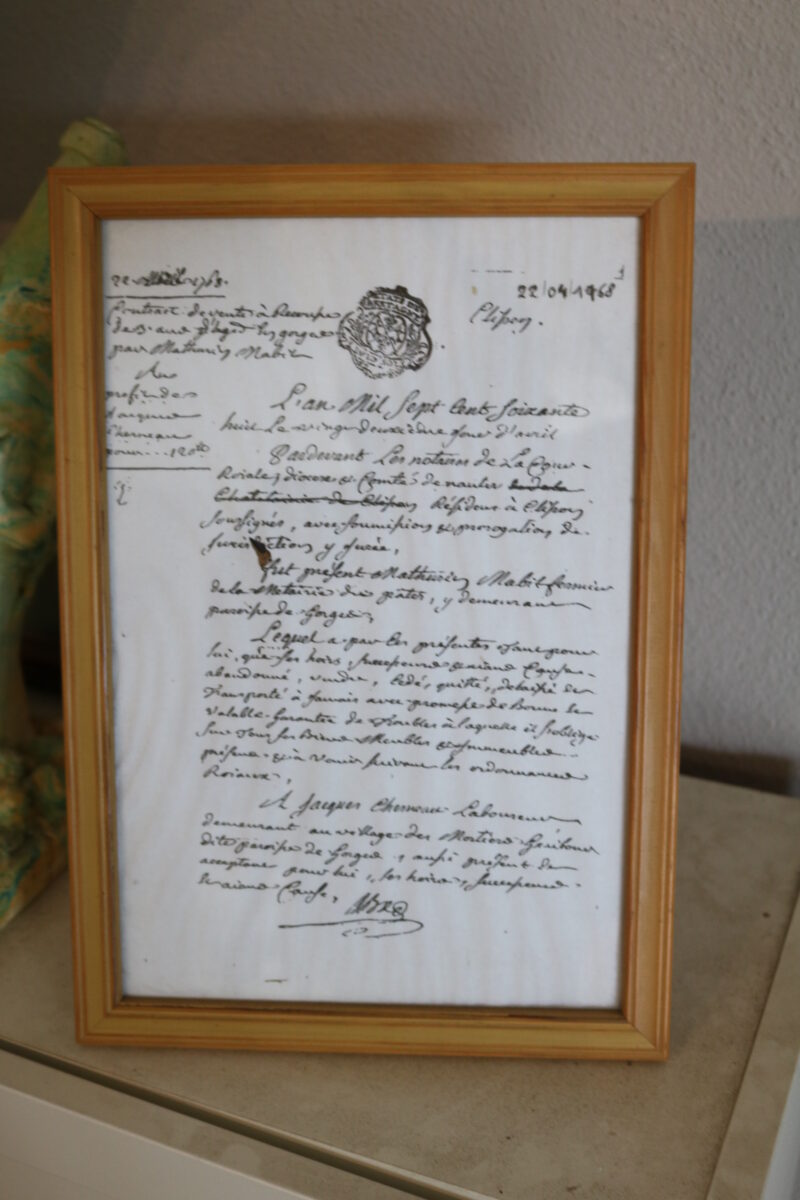 22 Avril 1768.
Contract de vente à
par Mathurin Mabit
Au
profit de
Jacques
Cherneau
pour ... 120
22/04/1968
Clisson.
L'an Mil Sept Cent Soixante
huit Le vingt deuxième jour d'avril
Pardevant Les notaires de La Cour
Roiale, diocese & Comté de nantes
Chatelainie de Clisson Résidens à Clisson
soussignés, avec soumission & prorogation de
jurisdiction y jurée,
fut présent Mathurin Mabit fermier
de la Metairie des pâtis, y demeurant
paroisse de Gorges,
Lequel a par les présentes tant pour
lui, que ses hoirs, successeurs & aiant Cause
abandonné, vendu, cedé, quitté, delaissé &
Transporté à jamais avec promesse de Bonne &
valable Garantie de Troubles à laquelle il s'oblige
sur Tous ses Biens Meubles & Immeubles
présens & à venir suivant les ordonnances
Roiaux,
A Jacques Cherneau Laboureur
demeurant au village des Mortiers
dite paroisse de Gorges, aussi présent &
acceptant pour lui, ses hoirs, successeurs
& aiant Cause,